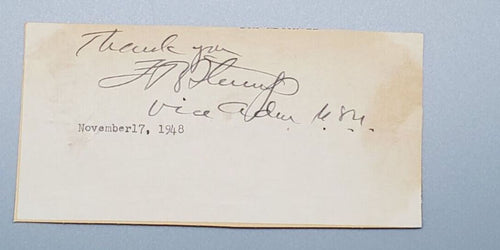 Thank you
F B Stump
Vice Adm USN.
November17, 1948